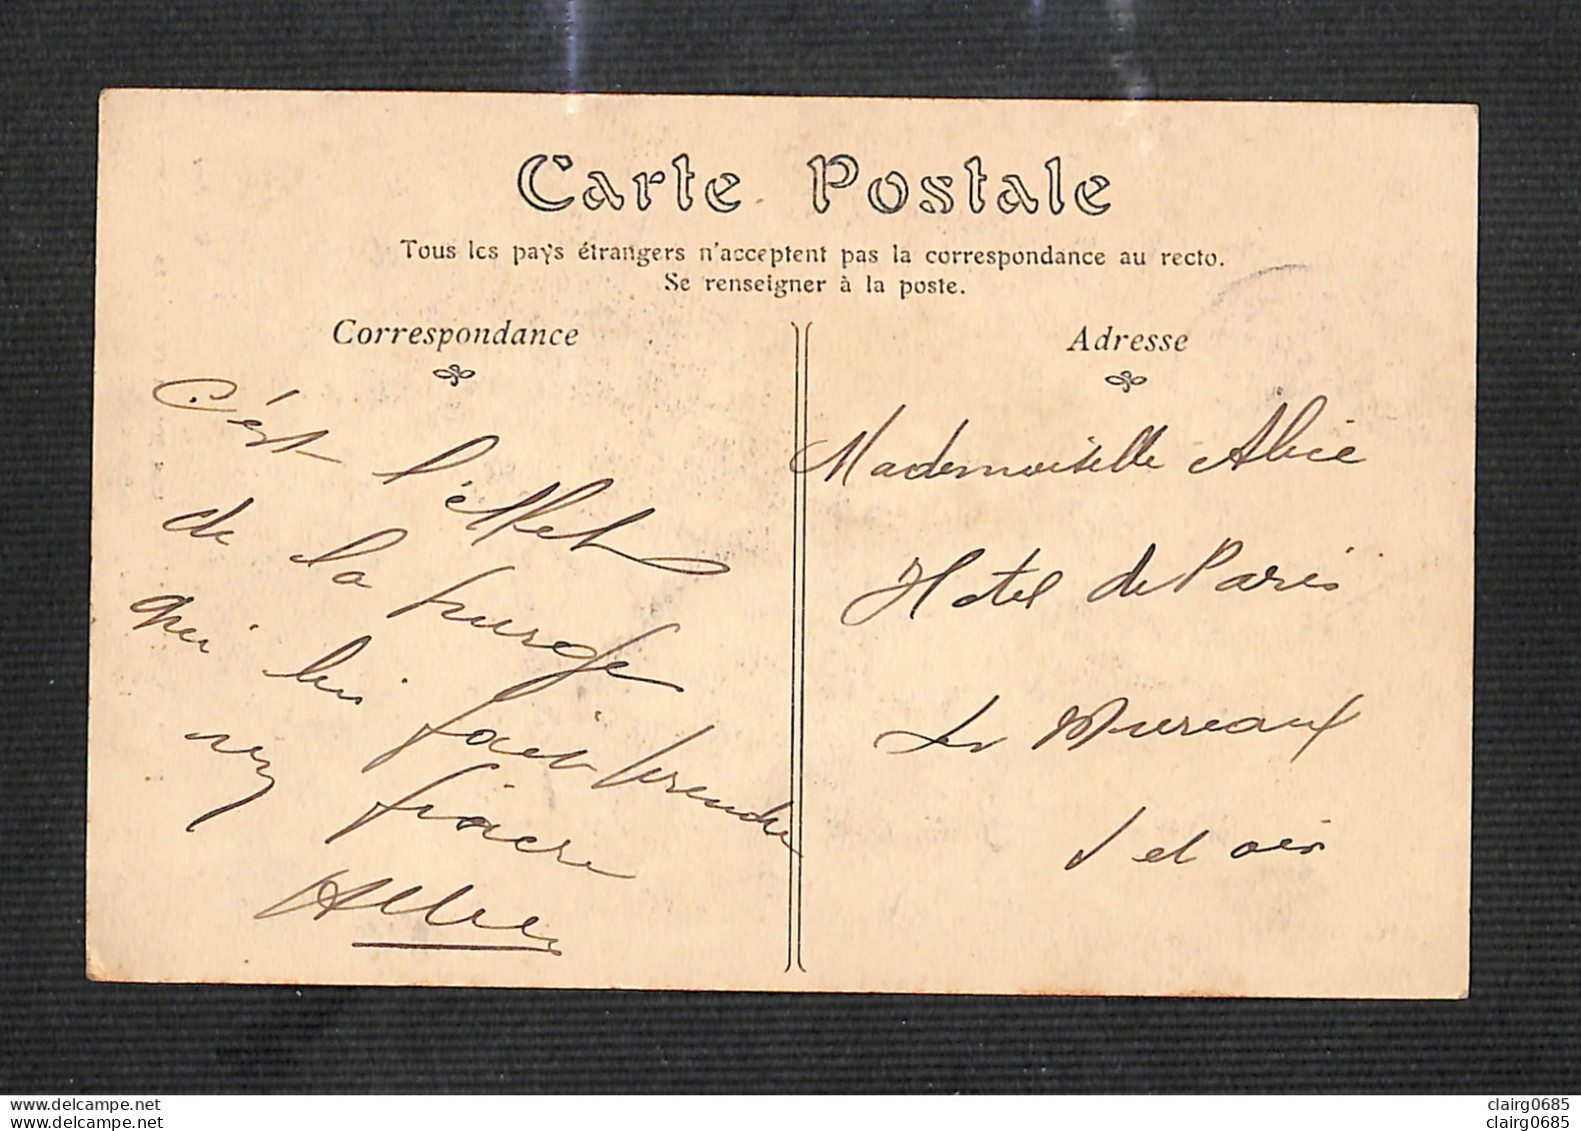 Carte Postale
Tous les pays étrangers n'acceptent pas la correspondance au recto.
Se renseigner à la poste.
Correspondance
C'est l'effet
de la purge
qui lui fait prendre
un fiacre
Adresse
Mademoiselle Alice
Hotel de Paris
Les Mureaux
S et oise
www.delcampe.net
clairg0685
clairg0685